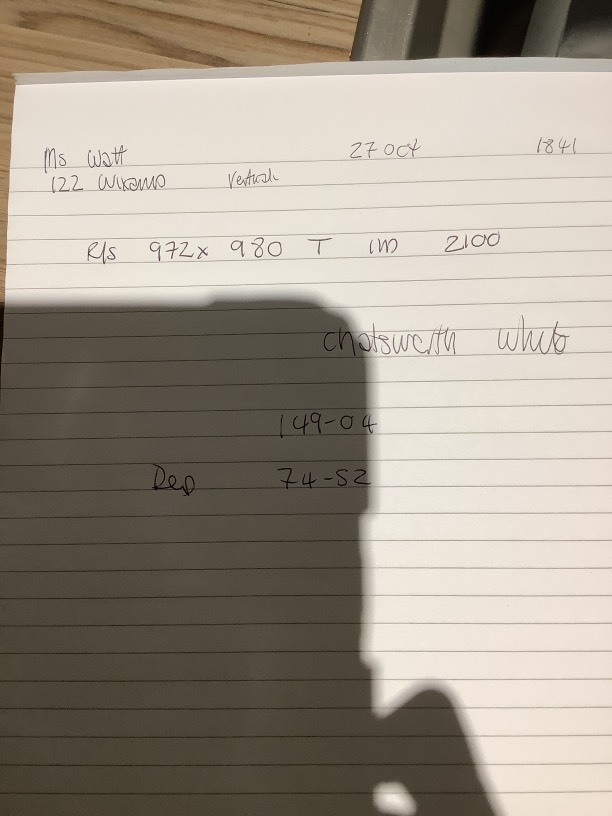 Ms Watt 27 Oct 1841
122 Verticals
R/s 972 x 980 T IM 2100
chatsworth white
149-04
Dep 74-52